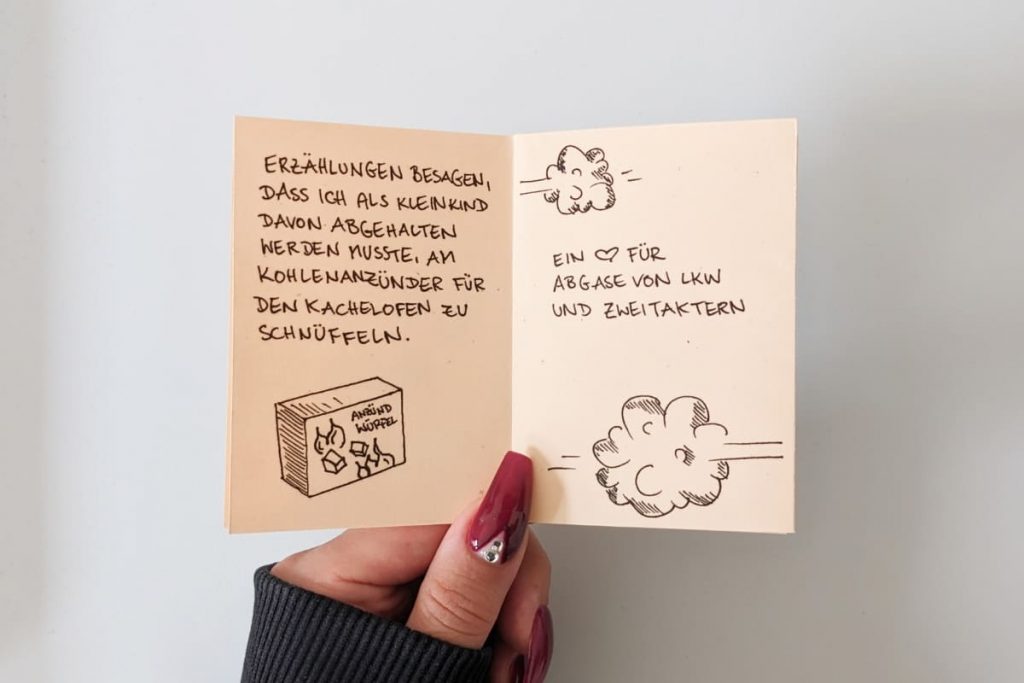 ERZÄHLUNGEN BESAGEN,
DASS ICH ALS KLEINKIND
DAVON ABGEHALTEN
WERDEN MUSSTE, AM
KOHLENANZÜNDER FÜR
DEN KACHELOFEN ZU
SCHNÜFFELN.
ANZÜND
WÜRFEL
EIN ♡ FÜR
ABGASE VON LKW
UND ZWEITAKTERN